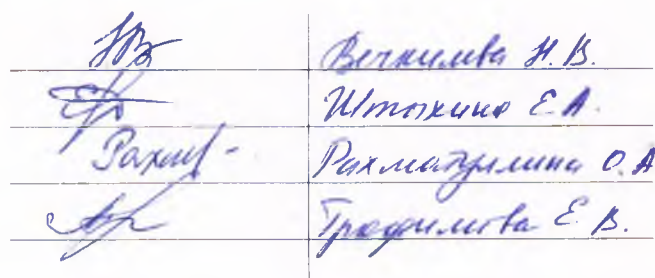 Вечкилева Н. В.
Штыхина Е. А.
Рахм- Рахматулина О. А
Трофимова Е. В.